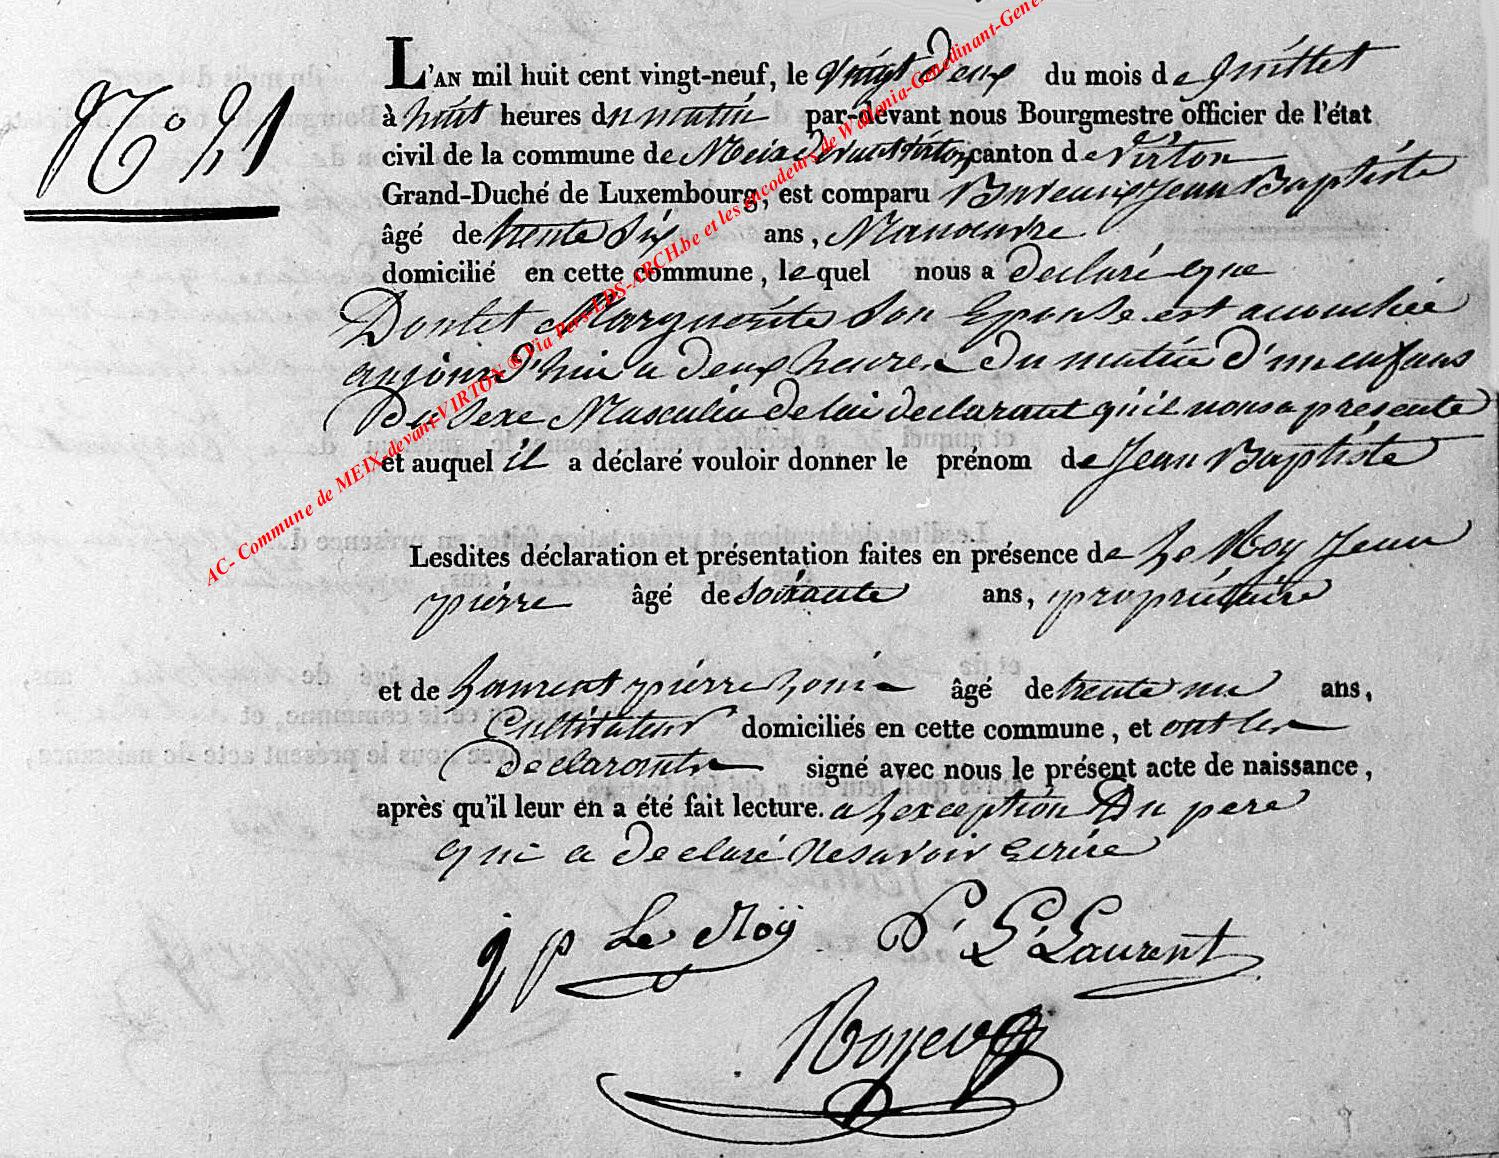 N.o 21
L'AN mil huit cent vingt-neuf, le vingt Deux du mois de Juillet
à huit heures du matin par-devant nous Bourgmestre officier de l'état
civil de la commune de Meix devant Virton canton de Virton
Grand-Duché de Luxembourg, est comparu Jean Baptiste
âgé de trente Six ans, Manoeuvre
domicilié en cette commune, lequel nous a declaré que
Marguerite Son Epouse est accouchée
aujourd'hui a deux heures Du matin d'un enfans
Du Sexe Masculin de lui declarant qu'il nous a presente
et auquel il a déclaré vouloir donner le prénom de Jean Baptiste
Lesdites déclaration et présentation faites en présence de Le Roy Jean
pierre âgé de soixante ans, propriétaire
et de Laurent pierre Louis âgé de trente un ans,
Cultivateur domiciliés en cette commune, et ont les
Declarants signé avec nous le présent acte de naissance,
après qu'il leur en a été fait lecture. a L'exception Du pere
qui a Declaré Ne savoir Ecrire
j p Le Roÿ P. L. Laurent
AC- Commune de MEIX-devant-VIRTON ® Via Pers-LDS-ARCH.be et les encodeurs de Wallonia-Genedinant-Gene